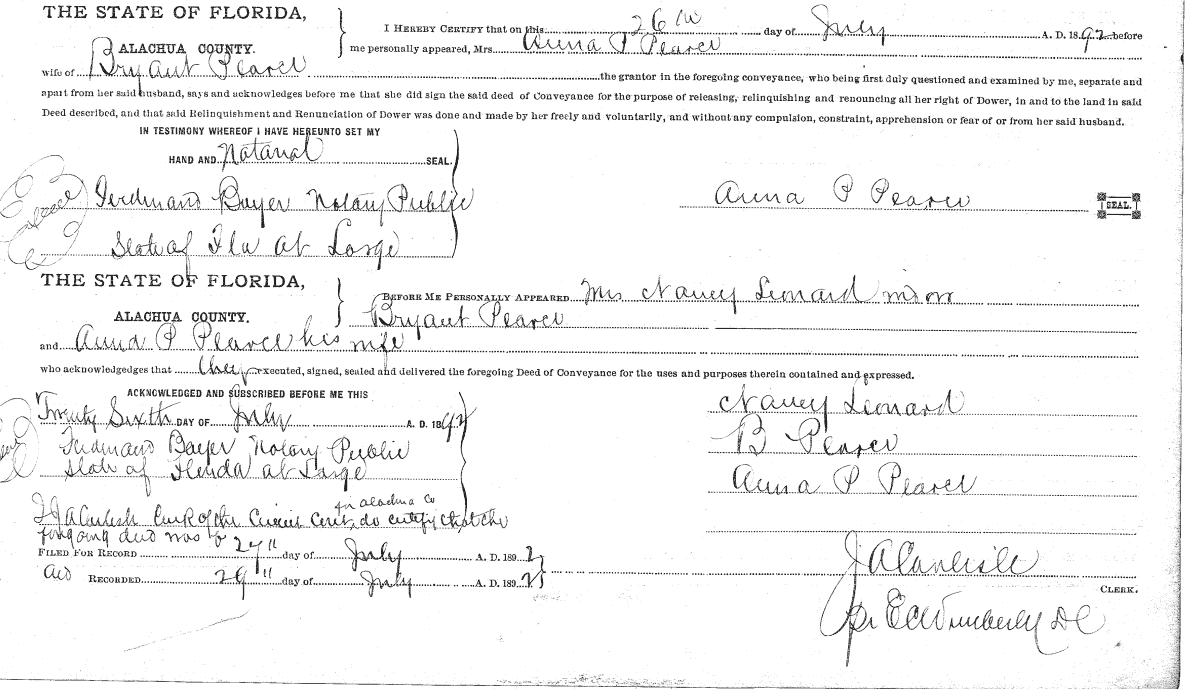 THE STATE OF FLORIDA,
ALACHUA COUNTY.
I HEREBY CERTIFY that on this 26th day of July A. D. 1892 before
me personally appeared, Mrs. Anna P Pearce
wife of Bryant Pearce the grantor in the foregoing conveyance, who being first duly questioned and examined by me, separate and
apart from her said husband, says and acknowledges before me that she did sign the said deed of Conveyance for the purpose of releasing, relinquishing and renouncing all her right of Dower, in and to the land in said
Deed described, and that said Relinquishment and Renunciation of Dower was done and made by her freely and voluntarily, and without any compulsion, constraint, apprehension or fear of or from her said husband.
IN TESTIMONY WHEREOF I HAVE HEREUNTO SET MY
HAND AND Notarial SEAL.
Seal Ferdinand Bayer Notary Public
Anna P Pearce SEAL.
State of Fla at Large
THE STATE OF FLORIDA,
ALACHUA COUNTY.
BEFORE ME PERSONALLY APPEARED Mrs Nancy Leonard
Bryant Pearce
and Anna P Pearce his wife
who acknowledgeds that they executed, signed, sealed and delivered the foregoing Deed of Conveyance for the uses and purposes therein contained and expressed.
ACKNOWLEDGED AND SUBSCRIBED BEFORE ME THIS
Twenty Sixth DAY OF July A. D. 1892
Seal Ferdinand Bayer Notary Public
State of Florida at Large
Nancy Leonard
B Pearce
Anna P Pearce
for Alachua Co
I J A Carlisle Clerk of the Circuit Court, do certify that the
foregoing deed was
FILED FOR RECORD 27" day of July A. D. 1892
and RECORDED 29" day of July A. D. 1892
J A Carlisle
CLERK.
pr E C Wimberly DC